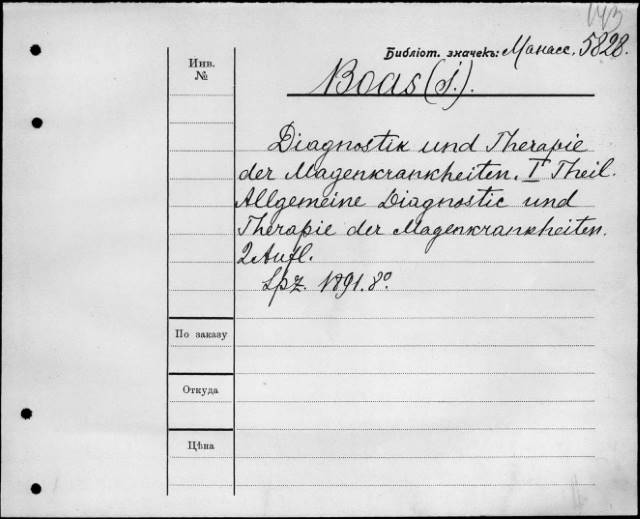 143
Библіот. значекъ: Манасс. 5828.
Инв.
№
Boas (J.).
Diagnostik und Therapie
der Magenkrankheiten. I Theil.
Allgemeine Diagnostic und
Therapie der Magenkrankheiten.
2 Aufl.
Lpz. 1891. 8°
По заказу
Откуда
Цѣна